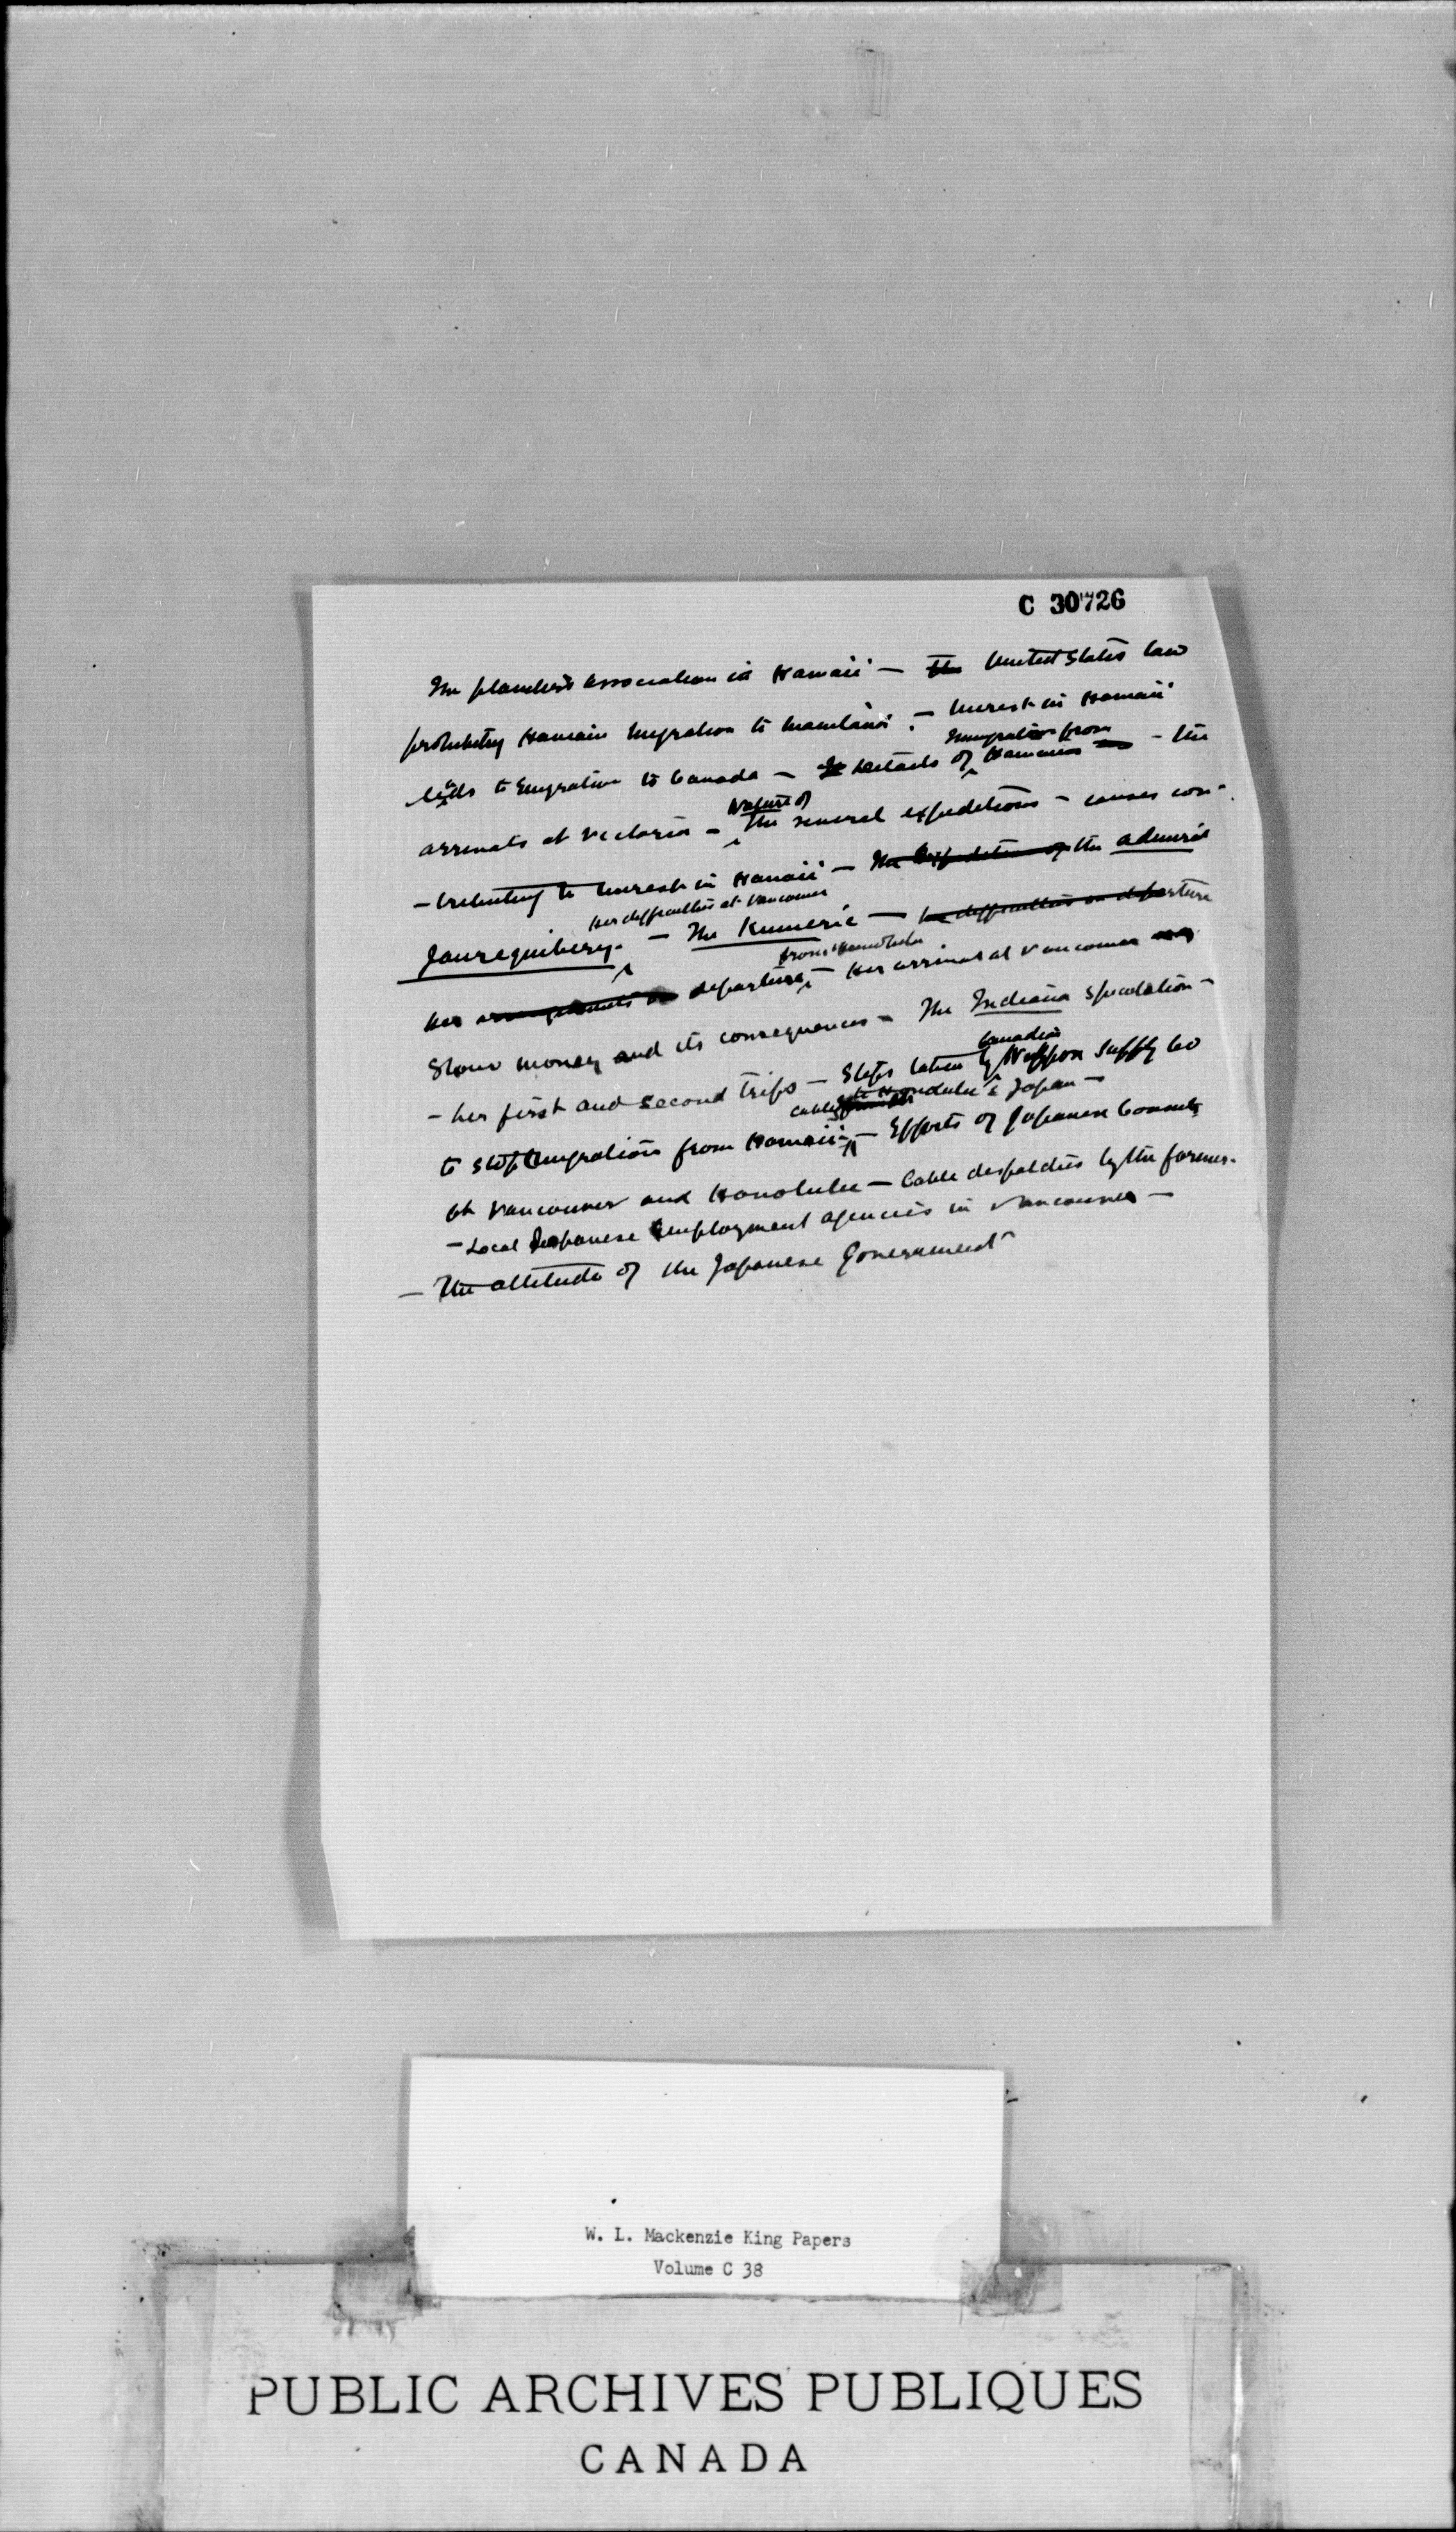 C 30726
The planter's association in Hawaii — the United States law
prohibiting Hawaiin migration to mainland. — Unrest in Hawaii
leads to Emigration to Canada — Details of ^ Immigration from Hawaiian — the
arrivals at Victoria — ^ Nature of the several expeditions — causes con-
-tributing to unrest in Hawaii — The Expedition of the Admiral
Jaureguibery. ^ Her difficulties at Vancouver — The Kumeric — her difficulties on departure
her arrangements departure, ^ from Honolulu — Her arrival at Vancouver
Show money and its consequences — The Indiana Speculation —
- her first and second trips — Steps taken by ^ Canadian Nippon Supply Co
to stop Emigration from Hawaii — ^ cables to Honolulu & Japan — Efforts of Japanese Consuls
at Vancouver and Honolulu — Cable despatches by the former.
- Local Japanese Employment agencies in Vancouver —
— The attitude of the Japanese Government
W. L. Mackenzie King Papers
Volume C 38
PUBLIC ARCHIVES PUBLIQUES
CANADA